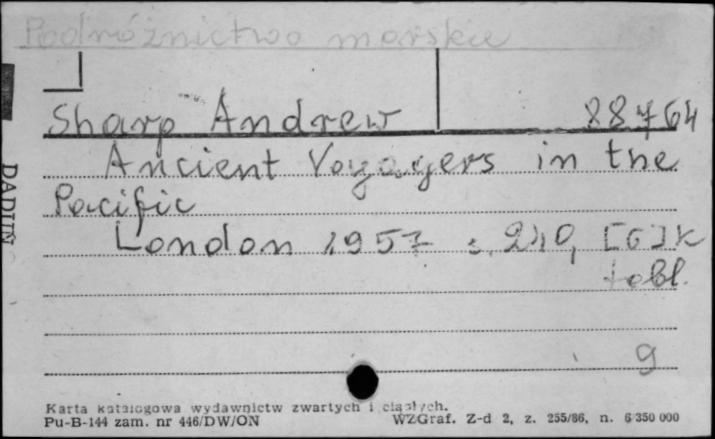 Podróżnictwo morskie
Sharp Andrew 88764
Ancient Voyagers in the
Pacific
London 1957 s. 240, [6] k
tabl.
9
DADUN
Karta katalogowa wydawnictw zwartych i ciągłych.
Pu-B-144 zam. nr 446/DW/ON WZGraf. Z-d 2, z. 255/86, n. 6 350 000